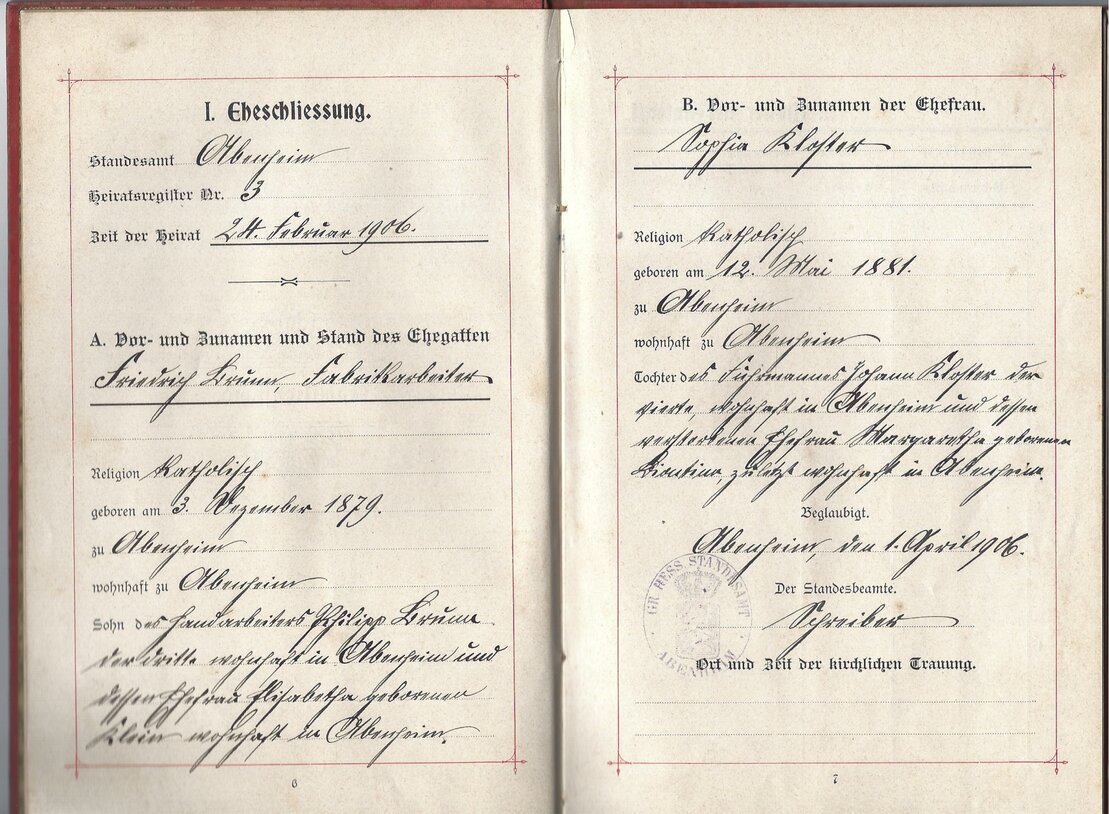 I. Eheschliessung.
Standesamt Abenheim
Heiratsregister Nr. 3
Zeit der Heirat 24. Februar 1906.
A. Vor- und Zunamen und Stand des Ehegatten
Friedrich Brunn, Fabrikarbeiter
Religion Katholisch
geboren am 3. Dezember 1879.
zu Abenheim
wohnhaft zu Abenheim
Sohn des Handarbeiters Philipp Brunn
der dritte wohnhaft in Abenheim und
dessen Ehefrau Elisabetha geborenen
Klein wohnhaft in Abenheim.
6
B. Vor- und Zunamen der Ehefrau.
Sophia Kloster
Religion Katholisch
geboren am 12. Mai 1881.
zu Abenheim
wohnhaft zu Abenheim
Tochter des Fuhrmannes Johann Kloster der
vierte, wohnhaft in Abenheim und dessen
verstorbenen Ehefrau Margaretha geborenen
zuletzt wohnhaft in Abenheim.
Beglaubigt.
Abenheim, den 1. April 1906.
Der Standesbeamte.
Schreiber
GR. HESS. STANDESAMT
ABENHEIM
Ort und Zeit der kirchlichen Trauung.
7